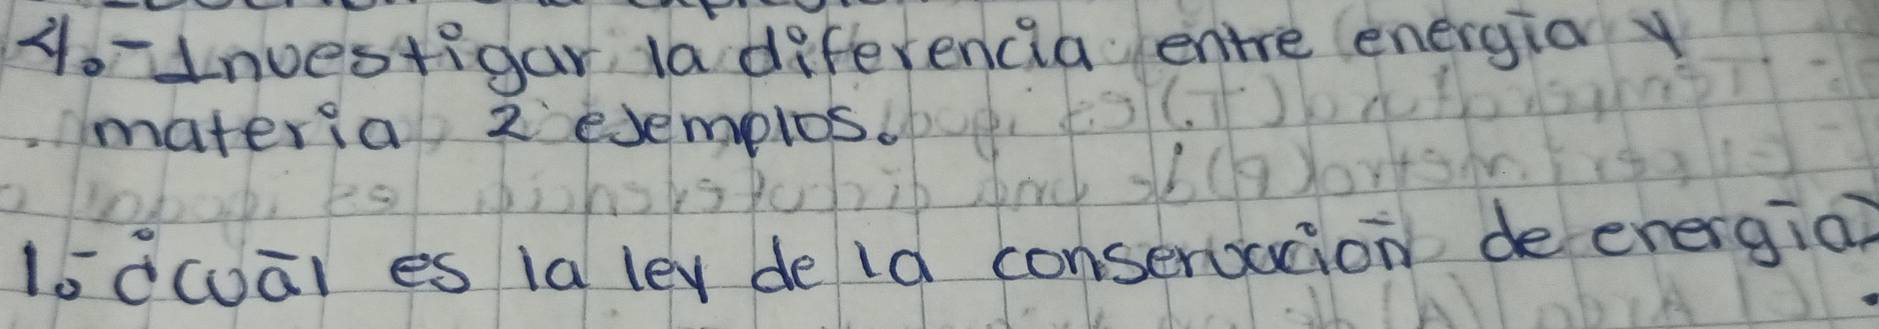 4.- Investigar la diferencia entre energía y
materia 2 ejemplos.
1.- ¿cuál es la ley de la conservación de energía?